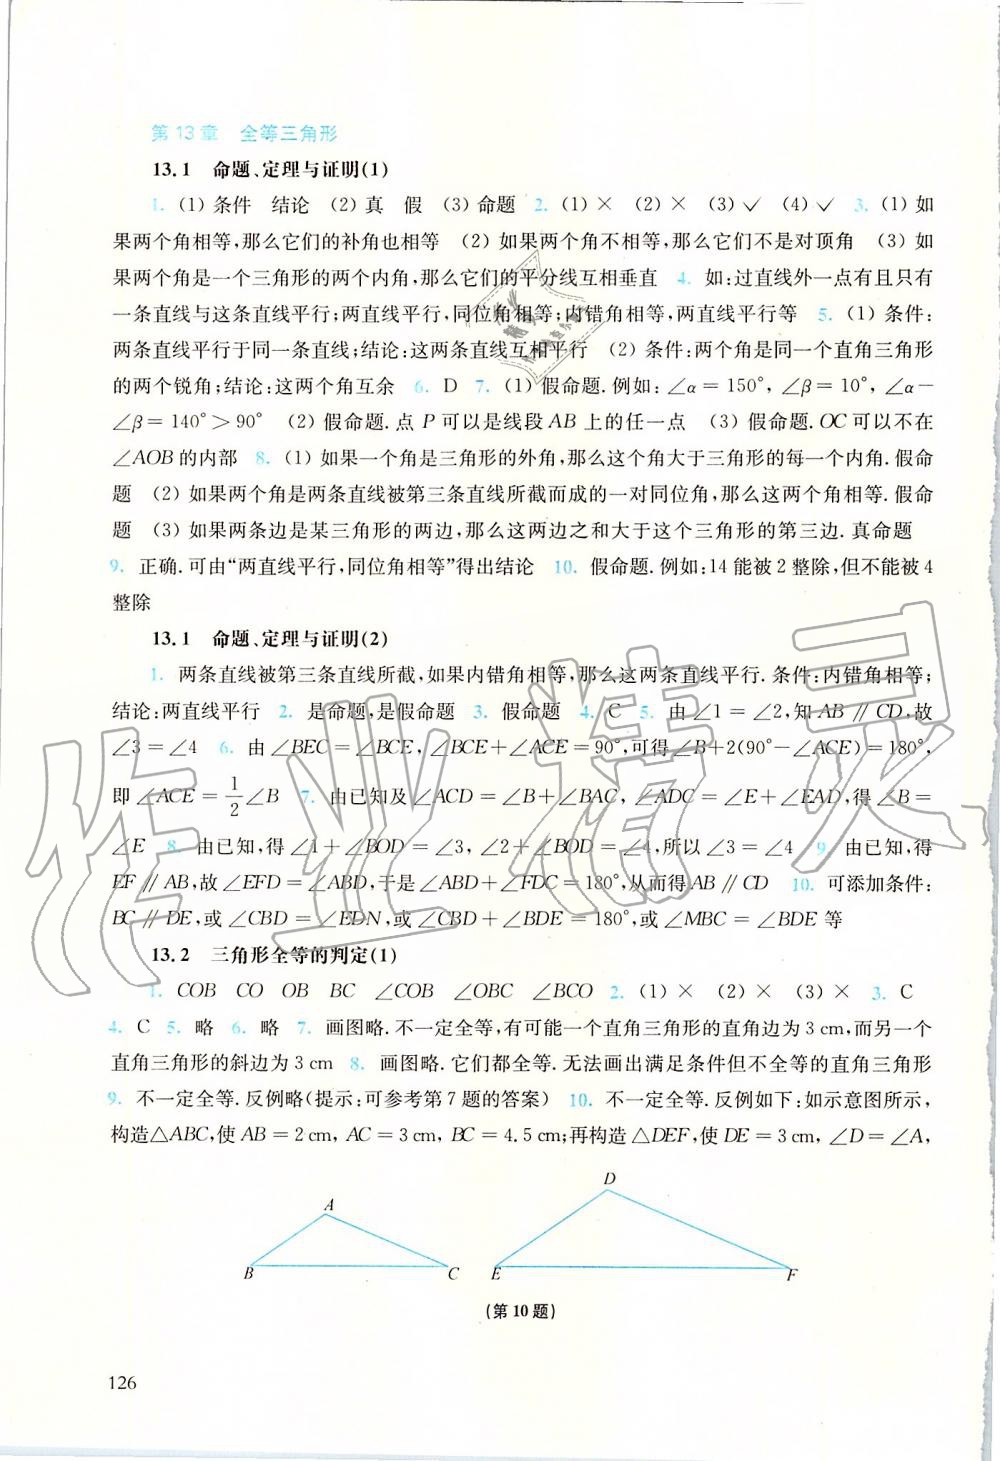 第13章　全等三角形
13.1　命题、定理与证明(1)
1. (1) 条件　结论　(2) 真　假　(3) 命题　2. (1) ×　(2) ×　(3) ✓　(4) ✓　3. (1) 如
果两个角相等,那么它们的补角也相等　(2) 如果两个角不相等,那么它们不是对顶角　(3) 如
果两个角是一个三角形的两个内角,那么它们的平分线互相垂直　4. 如:过直线外一点有且只有
一条直线与这条直线平行;两直线平行,同位角相等;内错角相等,两直线平行等　5. (1) 条件:
两条直线平行于同一条直线;结论:这两条直线互相平行　(2) 条件:两个角是同一个直角三角形
的两个锐角;结论:这两个角互余　6. D　7. (1) 假命题.例如:∠α=150°,∠β=10°,∠α−
∠β=140°>90°　(2) 假命题.点 P 可以是线段 AB 上的任一点　(3) 假命题.OC 可以不在
∠AOB 的内部　8. (1) 如果一个角是三角形的外角,那么这个角大于三角形的每一个内角.假命
题　(2) 如果两个角是两条直线被第三条直线所截而成的一对同位角,那么这两个角相等.假命
题　(3) 如果两条边是某三角形的两边,那么这两边之和大于这个三角形的第三边.真命题
9. 正确.可由“两直线平行,同位角相等”得出结论　10. 假命题.例如:14 能被 2 整除,但不能被 4
整除
13.1　命题、定理与证明(2)
1. 两条直线被第三条直线所截,如果内错角相等,那么这两条直线平行.条件:内错角相等;
结论:两直线平行　2. 是命题,是假命题　3. 假命题　4. C　5. 由∠1=∠2,知 AB∥CD,故
∠3=∠4　6. 由∠BEC=∠BCE,∠BCE+∠ACE=90°,可得∠B+2(90°−∠ACE)=180°,
即∠ACE=1/2∠B　7. 由已知及∠ACD=∠B+∠BAC,∠ADC=∠E+∠EAD,得∠B=
∠E　8. 由已知,得∠1+∠BOD=∠3,∠2+∠BOD=∠4,所以∠3=∠4　9. 由已知,得
EF∥AB,故∠EFD=∠ABD,于是∠ABD+∠FDC=180°,从而得 AB∥CD　10. 可添加条件:
BC∥DE,或∠CBD=∠EDN,或∠CBD+∠BDE=180°,或∠MBC=∠BDE 等
13.2　三角形全等的判定(1)
1. COB　CO　OB　BC　∠COB　∠OBC　∠BCO　2. (1) ×　(2) ×　(3) ×　3. C
4. C　5. 略　6. 略　7. 画图略.不一定全等,有可能一个直角三角形的直角边为 3 cm,而另一个
直角三角形的斜边为 3 cm　8. 画图略.它们都全等.无法画出满足条件但不全等的直角三角形
9. 不一定全等.反例略(提示:可参考第 7 题的答案)　10. 不一定全等.反例如下:如示意图所示,
构造△ABC,使 AB=2 cm, AC=3 cm, BC=4.5 cm;再构造△DEF,使 DE=3 cm,∠D=∠A,
D
A
B
C
E
F
(第 10 题)
126
作业精灵